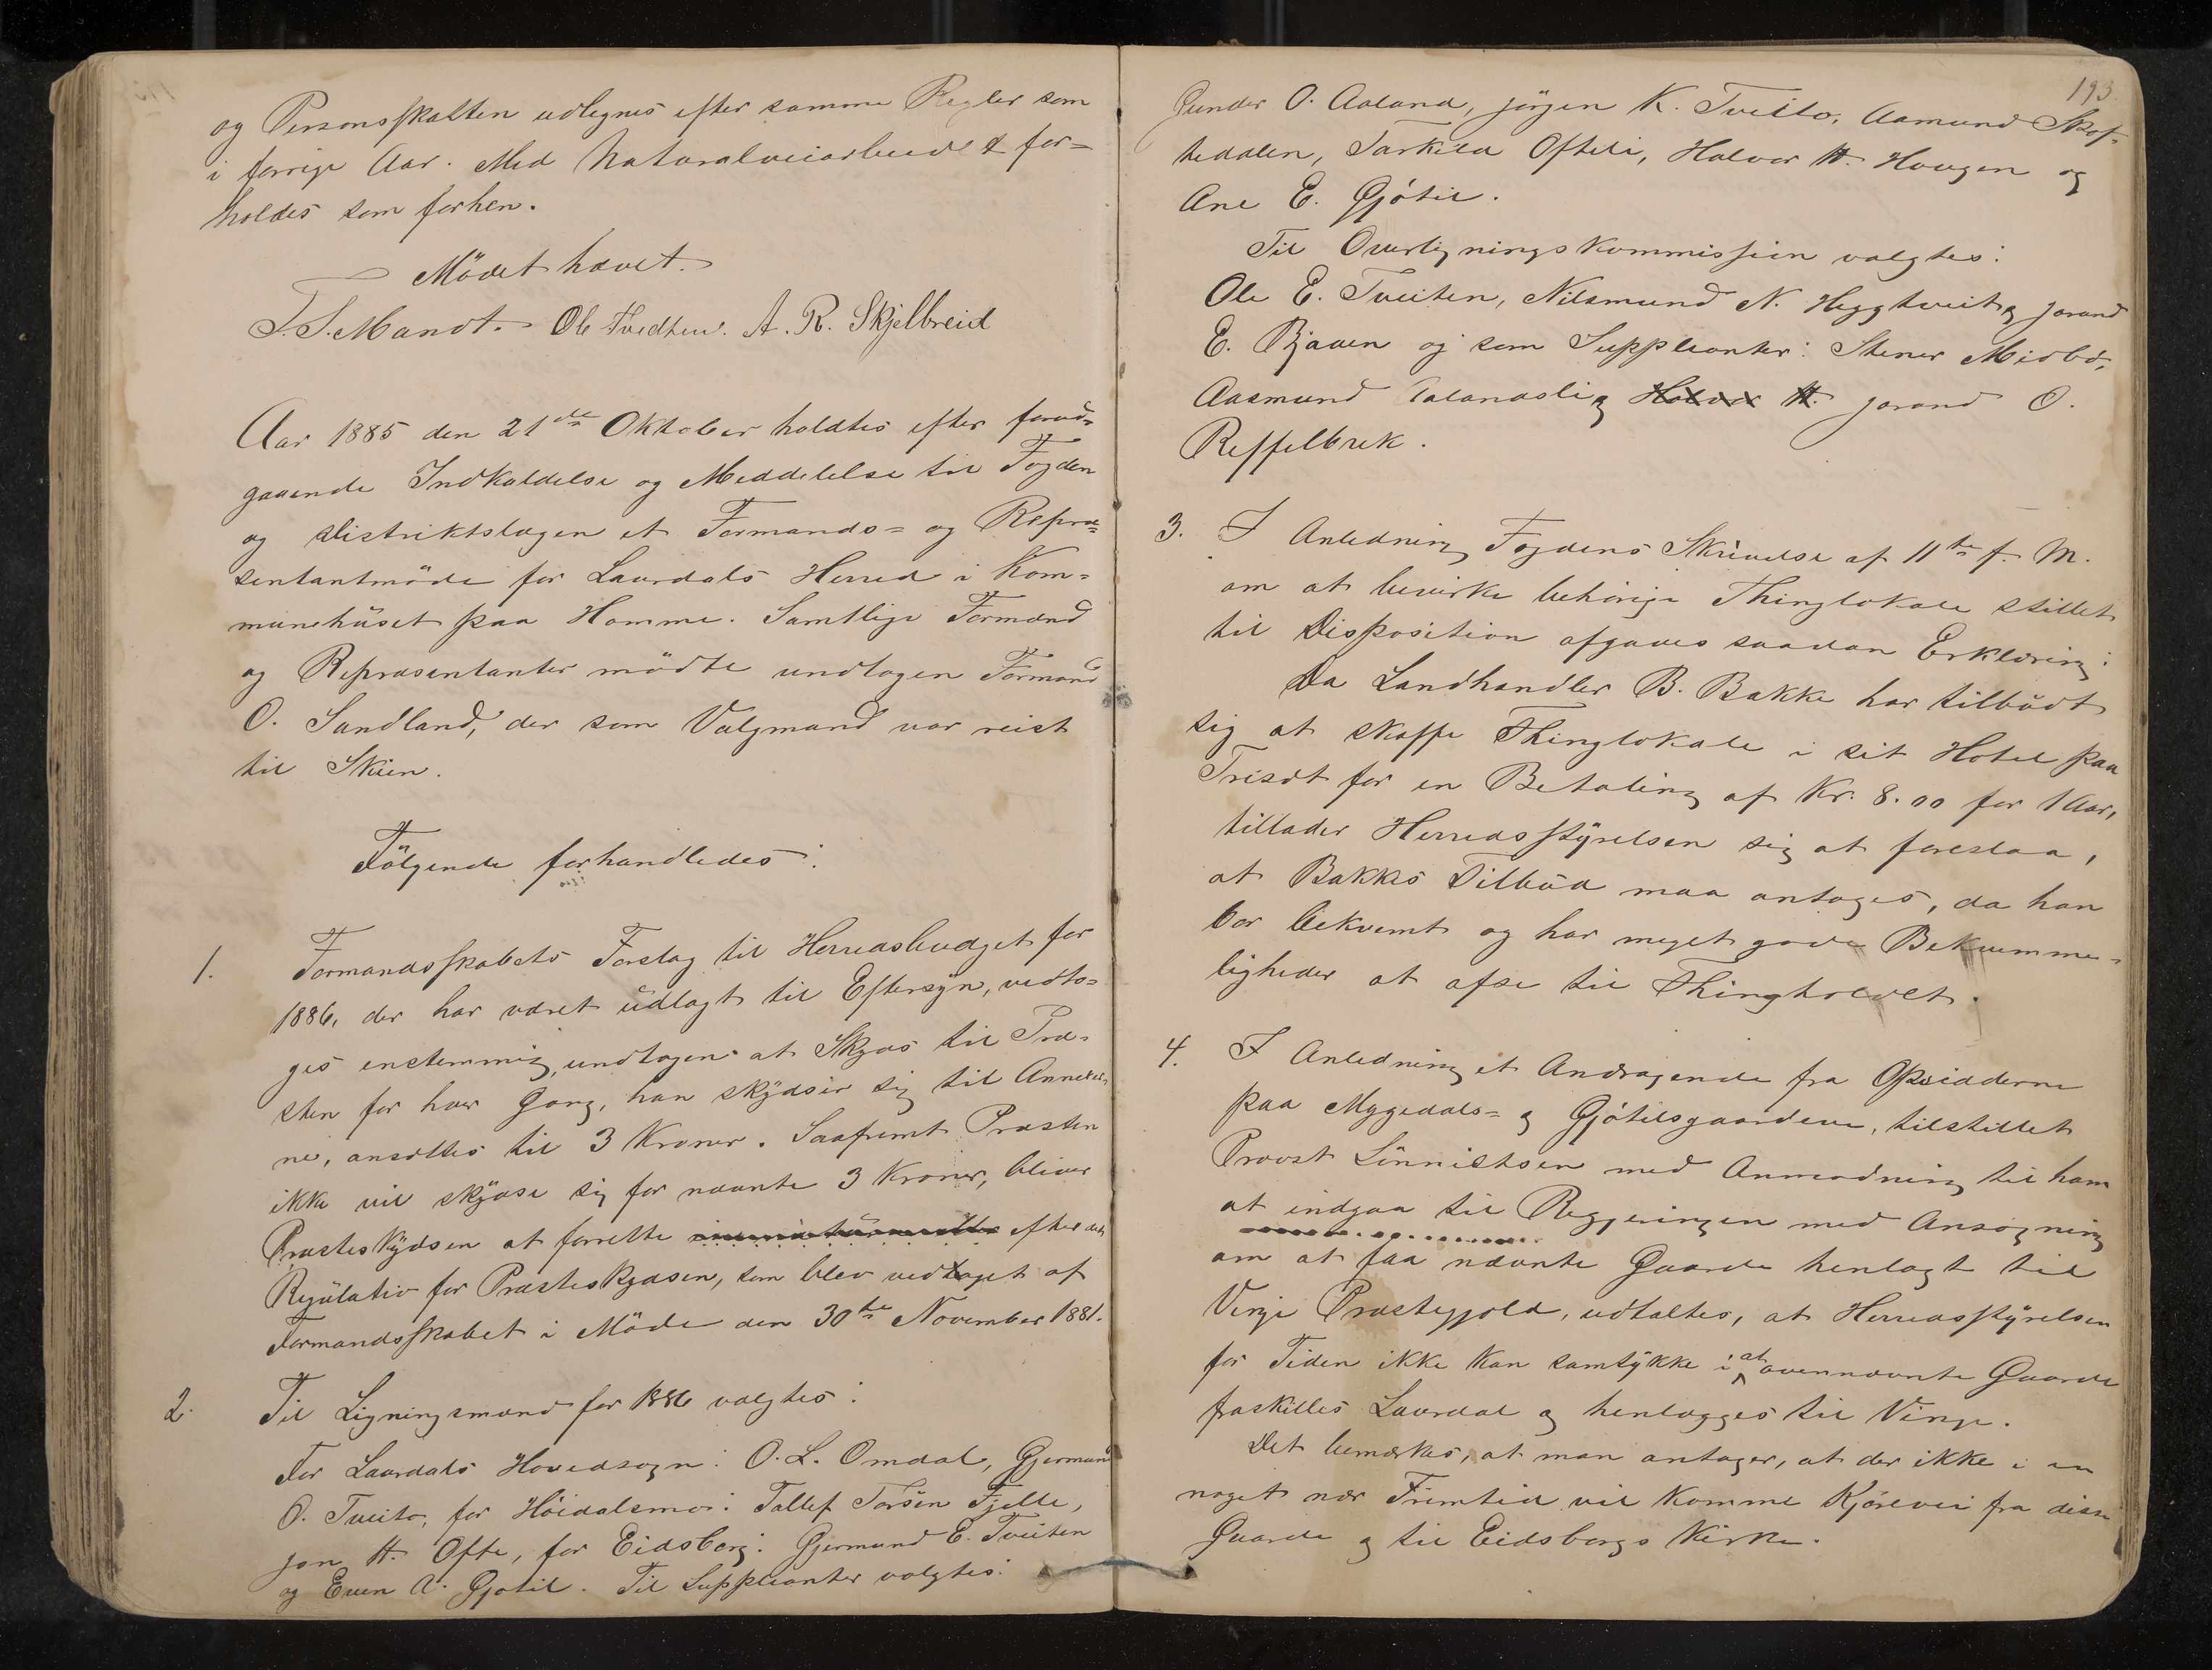 og Personsskatten udlegnes efter samme Regler som
i forrige Aar. Med Naturalveiarbeidet for=
holdes som forhen.
Mödet hævet.
T. S. Mandt. Ole Tvedten. A. R. Skjelbreid
Aar 1885 den 21de Oktober holdtes efter forud=
gaaende Indkaldelse og Meddelelse til Fogden
og Distriktslægen et Formands= og Repræ=
sentantmöde for Laurdals Herred i Kom=
munehuset paa Homme. Samtlige Formænd
og Repræsentanter mödte undtagen Formand
O. Sandland, der som Valgmand var reist
til Skien.
Fölgende forhandledes:
1. Formandsskabets Forslag til Herredsbudget for
1886, der har været udlagt til Eftersyn, vedto=
ges enstemmig, undtagen at Skyds til Præ=
sten for hver Gang, han skydser sig til Annexer=
ne, ansattes til 3 Kroner. Saafremt Præsten
ikke vil skydse sig for nævnte 3 Kroner, bliver
Præsteskydsen at forrette efter det
Regulativ for Præsteskydsen, som blev vedtaget af
Formandsskabet i Möde den 30te November 1881.
2. Til Ligningsmænd for 1886 valgtes:
For Laurdals Hovedsogn: O. L. Omdal, Gjermund
O. Tveito, for Höidalsmo: Tallef Torsen Fjelle,
Jon H. Ofte, for Eidsborg: Gjermund E. Tveiten
og Even A. Gjøtil. Til Suppleanter valgtes:
193.
Gunder O. Aaland, Jörgen K. Tveito, Aamund Skof=
tedalen, Tarkeld Ofteli, Halvor H. Haugen og
Ane E. Gjötil.
Til Overligningskommission valgtes:
Ole E. Tveiten, Nilsmund N. Heggtveit og Jorand
E. Bjaaen og som Suppleanter: Stener Midbö,
Aasmund Aalandsli og Halvor H. Jorand O.
Reffelbrek.
3. I Anledning Fogdens Skrivelse af 11te f. M.
om at bevirke behörige Thinglokale stillet
til Disposition afgaves saadan Erklæring:
Da Landhandler B. Bakke har tilbudt
sig at skaffe Thinglokale i sit Hotel paa
Trisæt for en Betaling af Kr. 8.00 for 1 Aar,
tillader Herredsstyrelsen sig at foreslaa,
at Bakkes Tilbud maa antages, da han
bor bekvemt og har meget gode Bekvemme=
ligheder at afse til Thingholdet.
4. I Anledning et Andragende fra Opsidderne
paa Myggedals= og Gjötilsgaardene, tilstillet
Provst Lönnichsen med Anmodning til ham
at indgaa til Regjeringen med Ansøgning
om at faa nævnte Gaarde henlagt til
Vinje Præstegjeld, udtaltes, at Herredsstyrelsen
for Tiden ikke kan samtykke i at ovennævnte Gaarde
fraskilles Laurdal og henlægges til Vinje.
Det bemærkes, at man antager, at der ikke i en
noget nær Fremtid vil komme Kjörevei fra disse
Gaarde og til Eidsborgs Kirke.